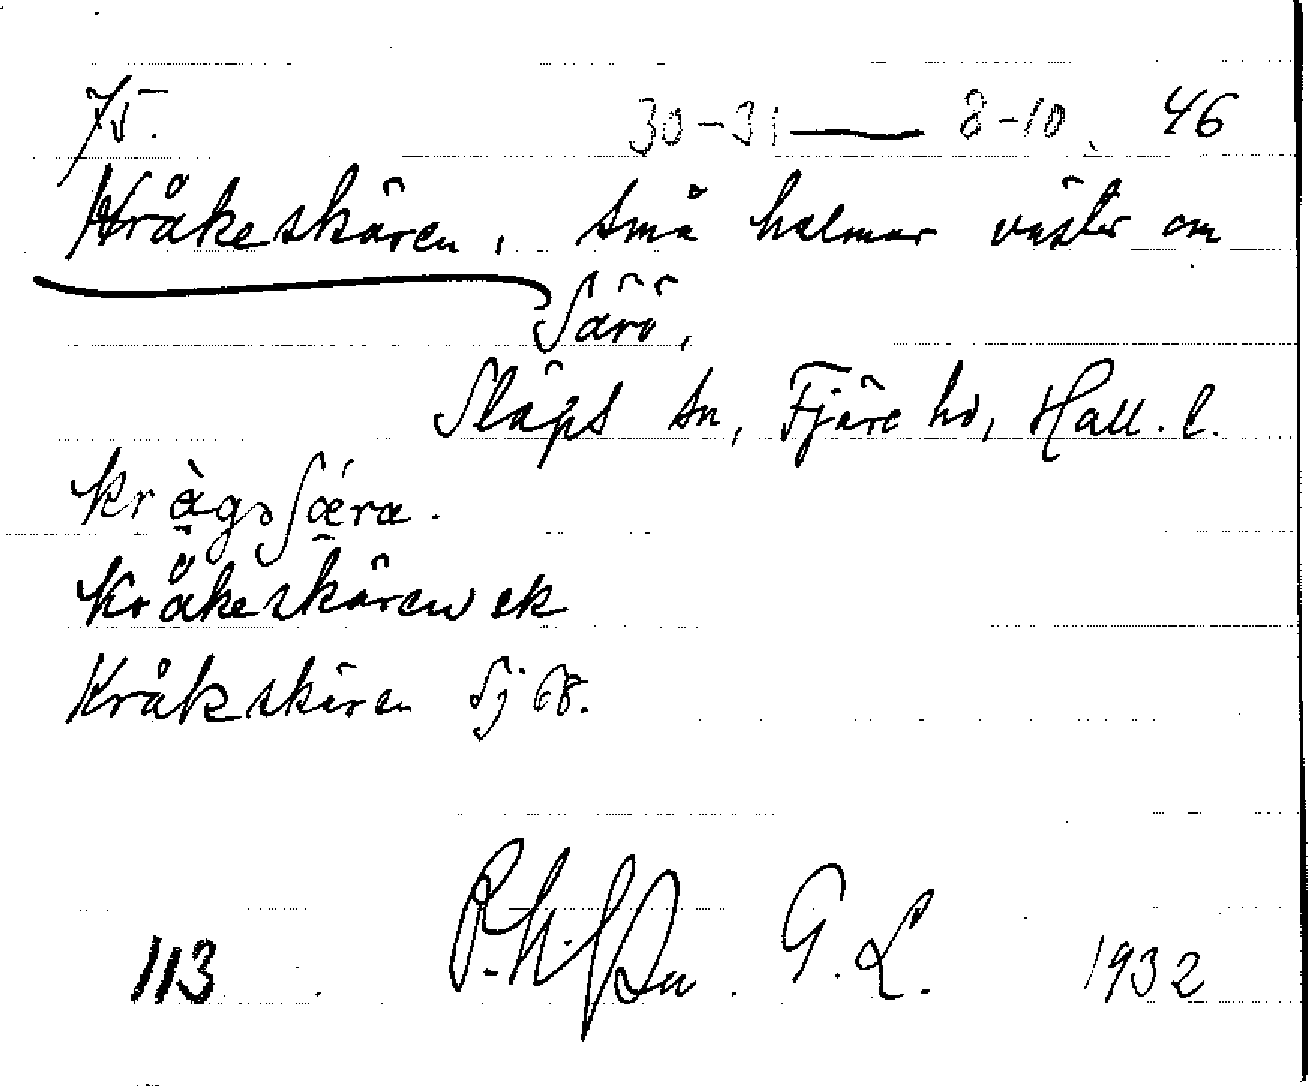 75. 30-31 — 8-10. 46
Kråkeskären, små holmar väster om
Särö,
Släps sn, Fjäre hd, Hall. l.
Kråkeskären ek
Kråkskären Sj 68.
113 G. L. 1932